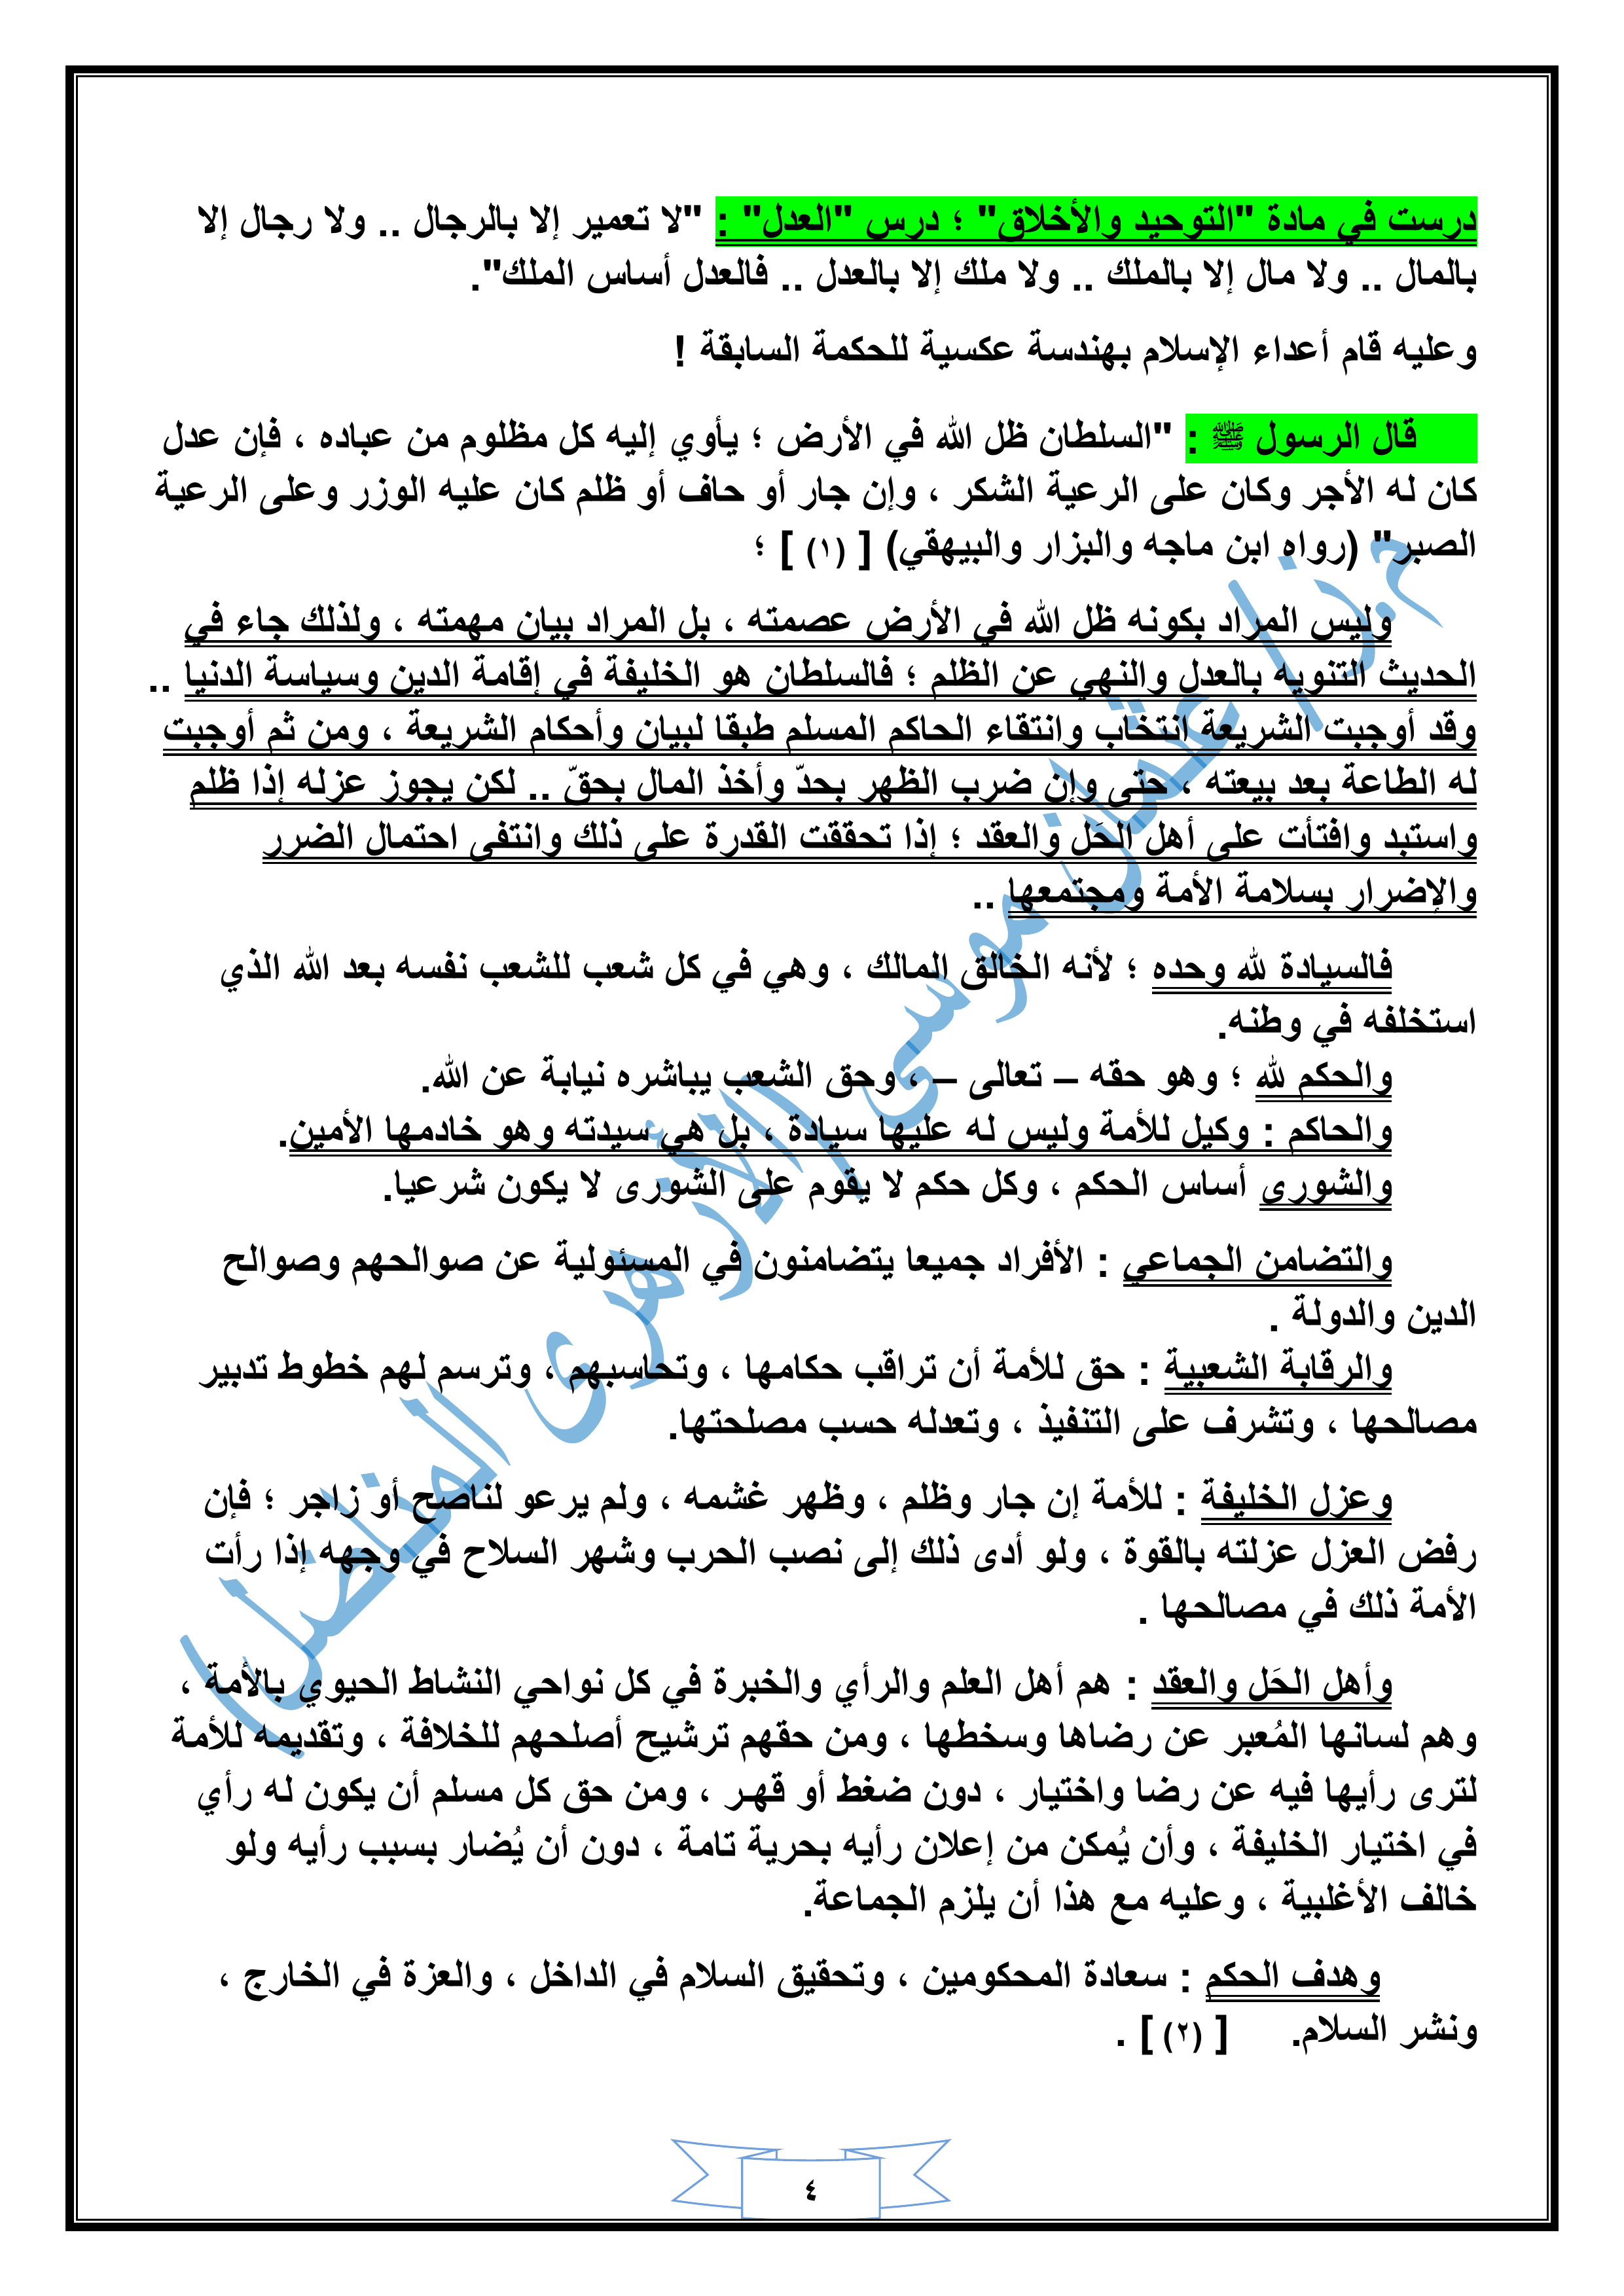 درست في مادة "التوحيد والأخلاق" ؛ درس "العدل" : "لا تعمير إلا بالرجال .. ولا رجال إلا
بالمال .. ولا مال إلا بالملك .. ولا ملك إلا بالعدل .. فالعدل أساس الملك".
وعليه قام أعداء الإسلام بهندسة عكسية للحكمة السابقة !
قال الرسول ﷺ : "السلطان ظل الله في الأرض ؛ يأوي إليه كل مظلوم من عباده ، فإن عدل
كان له الأجر وكان على الرعية الشكر ، وإن جار أو حاف أو ظلم كان عليه الوزر وعلى الرعية
الصبر" (رواه ابن ماجه والبزار والبيهقي) [ (١) ] ؛
وليس المراد بكونه ظل الله في الأرض عصمته ، بل المراد بيان مهمته ، ولذلك جاء في
الحديث التنويه بالعدل والنهي عن الظلم ؛ فالسلطان هو الخليفة في إقامة الدين وسياسة الدنيا ..
وقد أوجبت الشريعة انتخاب وانتقاء الحاكم المسلم طبقا لبيان وأحكام الشريعة ، ومن ثم أوجبت
له الطاعة بعد بيعته ، حتى وإن ضرب الظهر بحدّ وأخذ المال بحقّ .. لكن يجوز عزله إذا ظلم
واستبد وافتأت على أهل الحَل والعقد ؛ إذا تحققت القدرة على ذلك وانتفى احتمال الضرر
والإضرار بسلامة الأمة ومجتمعها ..
فالسيادة لله وحده ؛ لأنه الخالق المالك ، وهي في كل شعب للشعب نفسه بعد الله الذي
استخلفه في وطنه.
والحكم لله ؛ وهو حقه – تعالى – ، وحق الشعب يباشره نيابة عن الله.
والحاكم : وكيل للأمة وليس له عليها سيادة ، بل هي سيدته وهو خادمها الأمين.
والشورى أساس الحكم ، وكل حكم لا يقوم على الشورى لا يكون شرعيا.
والتضامن الجماعي : الأفراد جميعا يتضامنون في المسئولية عن صوالحهم وصوالح
الدين والدولة .
والرقابة الشعبية : حق للأمة أن تراقب حكامها ، وتحاسبهم ، وترسم لهم خطوط تدبير
مصالحها ، وتشرف على التنفيذ ، وتعدله حسب مصلحتها.
وعزل الخليفة : للأمة إن جار وظلم ، وظهر غشمه ، ولم يرعو لناصح أو زاجر ؛ فإن
رفض العزل عزلته بالقوة ، ولو أدى ذلك إلى نصب الحرب وشهر السلاح في وجهه إذا رأت
الأمة ذلك في مصالحها .
وأهل الحَل والعقد : هم أهل العلم والرأي والخبرة في كل نواحي النشاط الحيوي بالأمة ،
وهم لسانها المُعبر عن رضاها وسخطها ، ومن حقهم ترشيح أصلحهم للخلافة ، وتقديمه للأمة
لترى رأيها فيه عن رضا واختيار ، دون ضغط أو قهـر ، ومن حق كل مسلم أن يكون له رأي
في اختيار الخليفة ، وأن يُمكن من إعلان رأيه بحرية تامة ، دون أن يُضار بسبب رأيه ولو
خالف الأغلبية ، وعليه مع هذا أن يلزم الجماعة.
وهدف الحكم : سعادة المحكومين ، وتحقيق السلام في الداخل ، والعزة في الخارج ،
ونشر السلام. [ (٢) ] .
٤